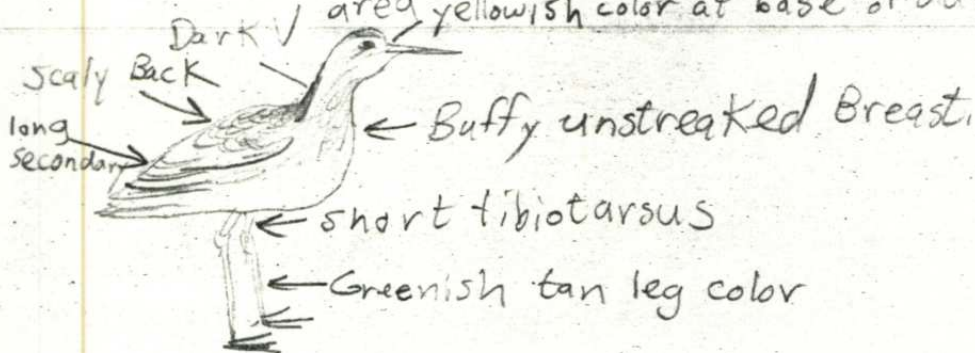 area yellowish color at base of
Dark
Scaly Back
long
Secondary
Buffy unstreaked Breast.
short tibiotarsus
Greenish tan leg color